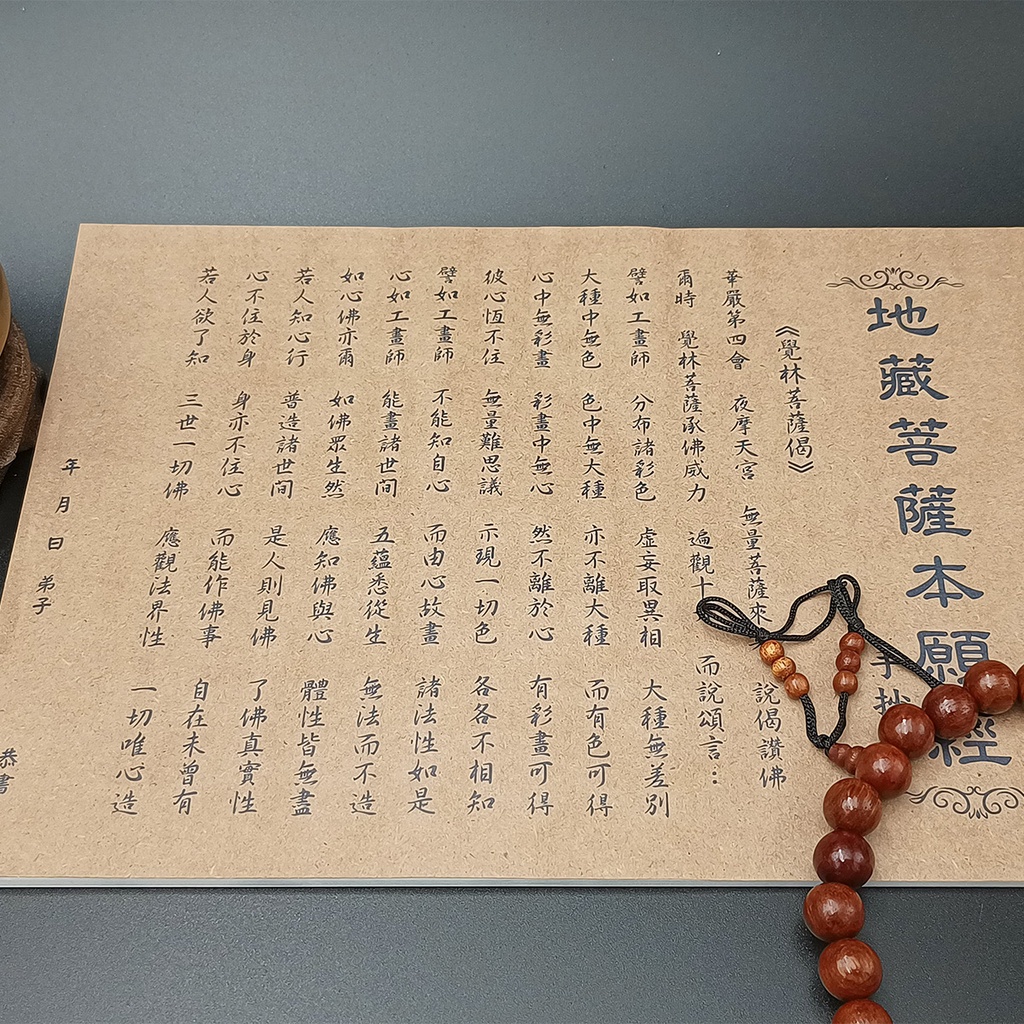 地藏菩薩本願經
手抄
《覺林菩薩偈》
華嚴第四會 夜摩天宮 無量菩薩來 說偈讚佛
爾時 覺林菩薩承佛威力 遍觀十 而說頌言：
譬如工畫師 分布諸彩色 虛妄取異相 大種無差別
大種中無色 色中無大種 亦不離大種 而有色可得
心中無彩畫 彩畫中無心 然不離於心 有彩畫可得
彼心恆不住 無量難思議 示現一切色 各各不相知
譬如工畫師 不能知自心 而由心故畫 諸法性如是
心如工畫師 能畫諸世間 五蘊悉從生 無法而不造
如心佛亦爾 如佛眾生然 應知佛與心 體性皆無盡
若人知心行 普造諸世間 是人則見佛 了佛真實性
心不住於身 身亦不住心 而能作佛事 自在未曾有
若人欲了知 三世一切佛 應觀法界性 一切唯心造
年 月 日 弟子 恭書